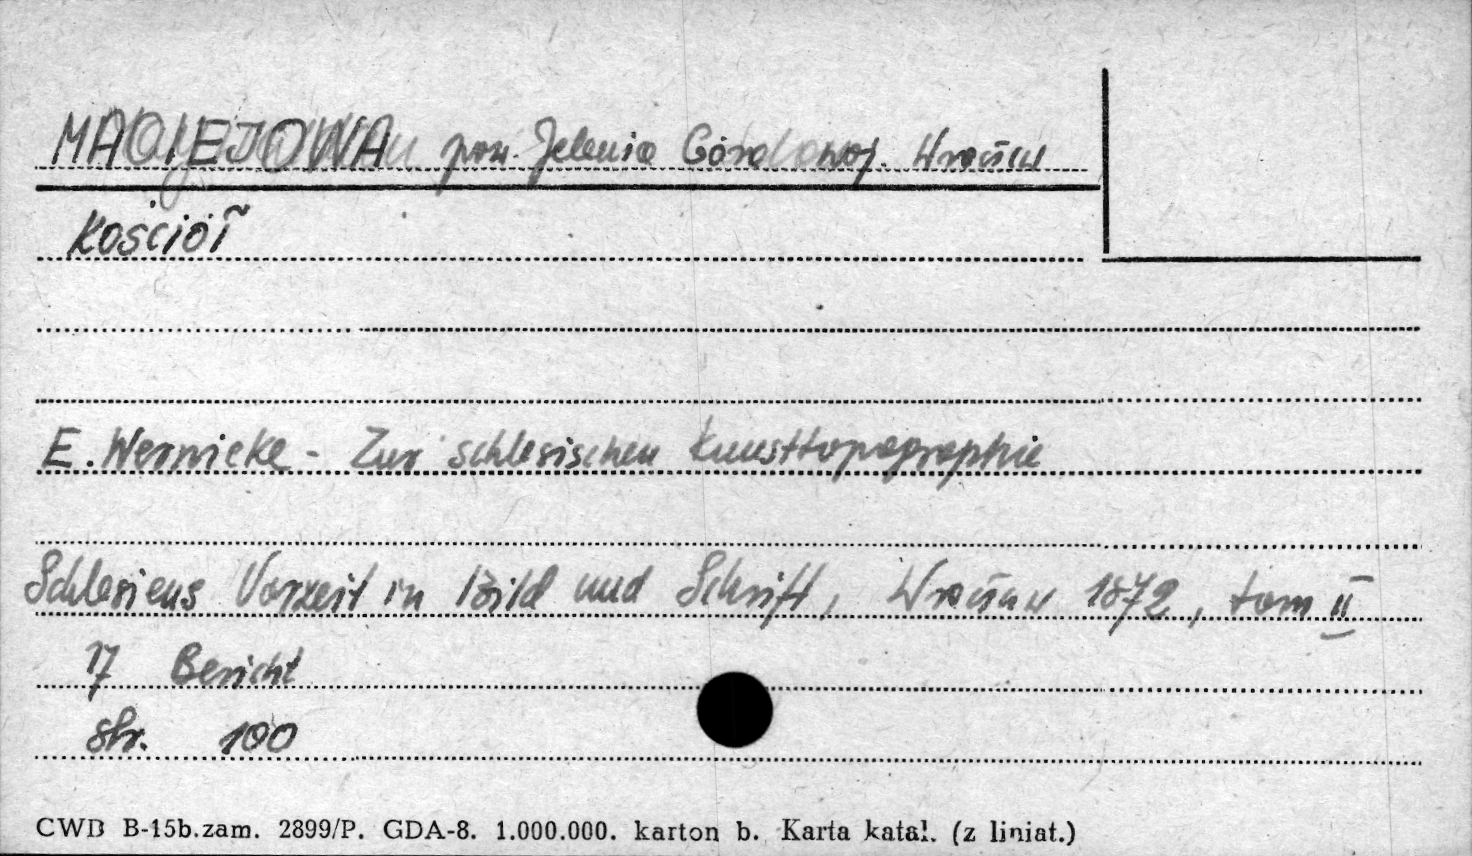 MACIEJOWA pow. Jelenia Góra woj. Wrocław
Kościół
E. Wernicke - Zur schlesischen Kunsttopographie
Schlesiens Vorzeit in Bild und Schrift, Wrocław 1872, tom II
17 Bericht
str. 100
CWD B-15b.zam. 2899/P. GDA-8. 1.000.000. karton b. Karta katal. (z liniat.)